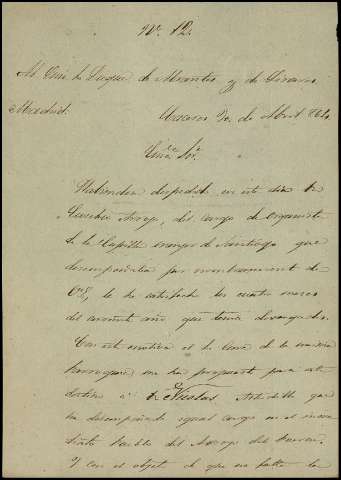 Nº 12.
Al Exmo. Sr. Duque de Abrantes y de Linares
Madrid.
de Abril 186
Exmo. Sr.
Habiendo despedido en este dia D.
Arroyo, del cargo de organista
de la Capilla de Santiago que
desempeñaba por nombramiento de
V.E., le he satisfecho los cuatro meses
del corriente año que tenia devengados.
Con este motivo el Sr. Cura de la misma
parroquia me ha propuesto para este
destino á D. Nicolas que
ha desempeñado igual cargo en el inme
diato pueblo del Arroyo del Puerco.
Y con el objeto de que no falte la